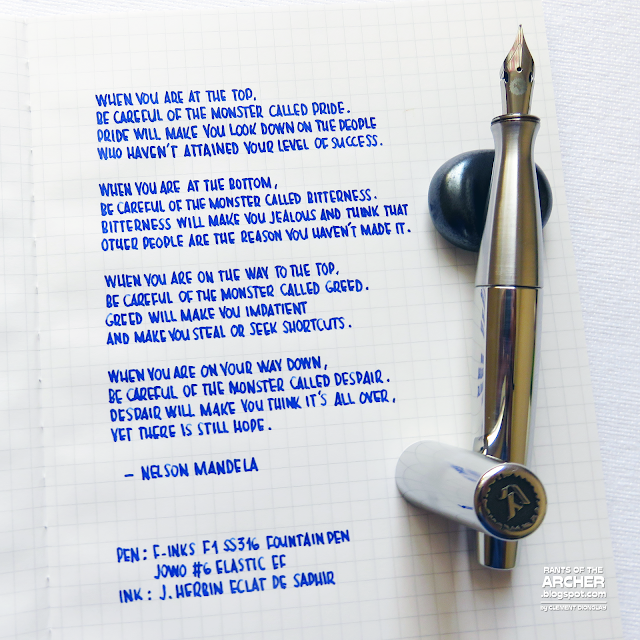 WHEN YOU ARE AT THE TOP,
BE CAREFUL OF THE MONSTER CALLED PRIDE.
PRIDE WILL MAKE YOU LOOK DOWN ON THE PEOPLE
WHO HAVEN'T ATTAINED YOUR LEVEL OF SUCCESS.
WHEN YOU ARE AT THE BOTTOM,
BE CAREFUL OF THE MONSTER CALLED BITTERNESS.
BITTERNESS WILL MAKE YOU JEALOUS AND THINK THAT
OTHER PEOPLE ARE THE REASON YOU HAVEN'T MADE IT.
WHEN YOU ARE ON THE WAY TO THE TOP,
BE CAREFUL OF THE MONSTER CALLED GREED.
GREED WILL MAKE YOU IMPATIENT
AND MAKE YOU STEAL OR SEEK SHORTCUTS.
WHEN YOU ARE ON YOUR WAY DOWN,
BE CAREFUL OF THE MONSTER CALLED DESPAIR.
DESPAIR WILL MAKE YOU THINK IT'S ALL OVER,
YET THERE IS STILL HOPE.
– NELSON MANDELA
PEN: F-INKS F1 SS316 FOUNTAIN PEN
JOWO #6 ELASTIC EF
INK: J. HERBIN ECLAT DE SAPHIR
RANTS OF THE
ARCHER
.blogspot.com
by CLEMENT DIONGLAY